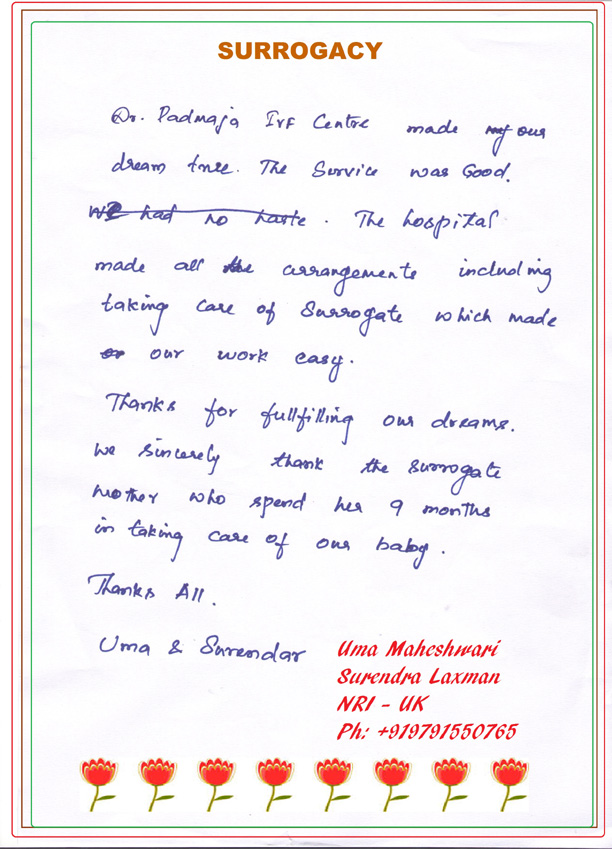 SURROGACY
Dr. Padmaja Ivf Centre made my our
dream true. The Service was Good.
We had no haste. The hospital
made all the arrangements including
taking care of Surrogate which made
or our work easy.
Thanks for fullfilling our dreams.
We sincerely thank the surrogate
mother who spend her 9 months
in taking care of our baby.
Thanks All.
Uma & Surendar
Uma Maheshwari
Surendra Laxman
NRI - UK
Ph: +919791550765